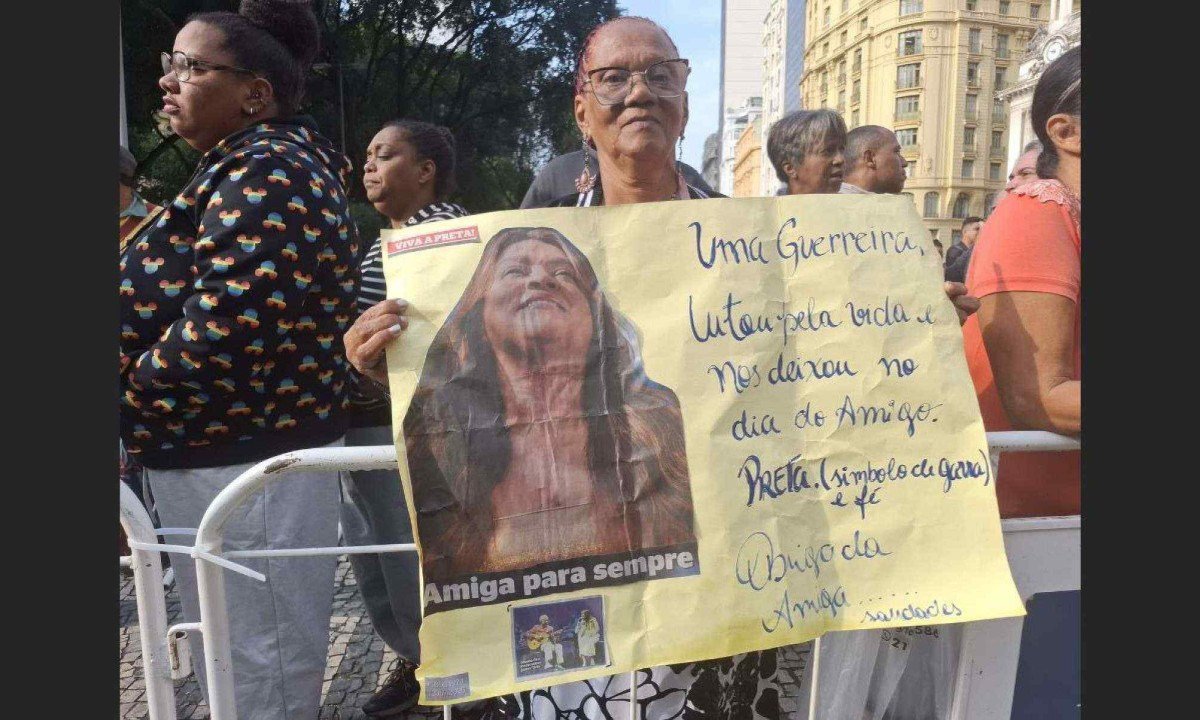 VIVA A PRETA!
Uma Guerreira,
lutou pela vida e
Nos deixou no
dia do Amigo.
PRETA. (simbolo de garra)
e fé
Obrigada
Amiga......
saudades
Amiga para sempre